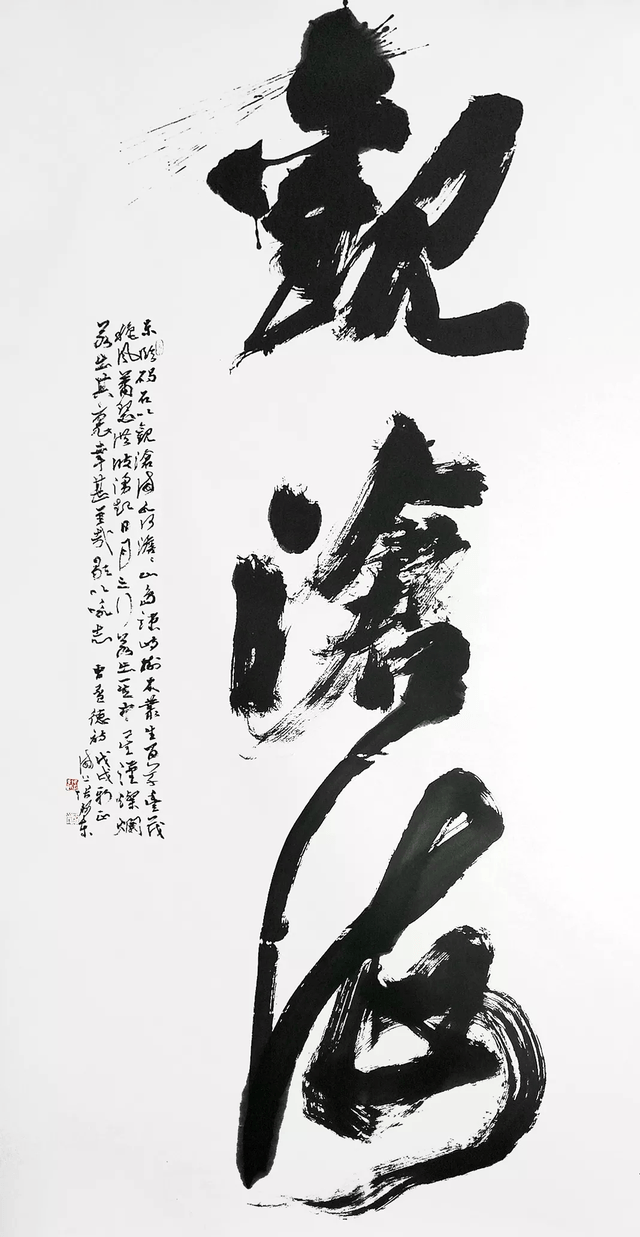 觀滄海
东臨碣石以觀滄海水何澹々山島竦峙樹木叢生百草豐茂
秋风蕭瑟洪波湧起日月之行若出其中星漢燦爛
若出其裏幸甚至哉歌以咏志 曹孟德詩 戊戌新正